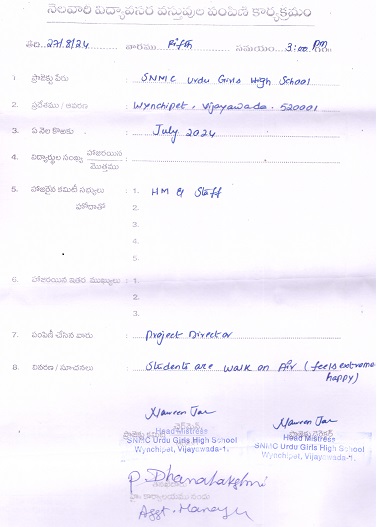 నెలవారి విద్యావసర వస్తువుల పంపిణీ కార్యక్రమం
తేది 27/8/24 వారము Fifth సమయం 3:00 Pm
1. ప్రాజెక్టు పేరు : SNMC Urdu Girls High School
2. ప్రదేశము / ఆవరణ : Wynchipet, Vijayawada. 520001
3. ఏ నెల కొఱకు : July 2024
4. విద్యార్థుల సంఖ్య హాజరయిన / మొత్తము :
5. హాజరైన కమిటీ సభ్యులు : 1. HM & Staff
హోదాతో 2.
3.
4.
5.
6. హాజరయిన ఇతర ముఖ్యులు : 1.
2.
3.
7. పంపిణీ చేసిన వారు : Project Director
8. వివరణ / సూచనలు : Students are walk on Air (feels extreme
happy)
Head Mistress
SNMC Urdu Girls High School
Wynchipet, Vijayawada-1.
Head Mistress
SNMC Urdu Girls High School
Wynchipet, Vijayawada-1.
P. Dhanalakshmi
Asst. Manager